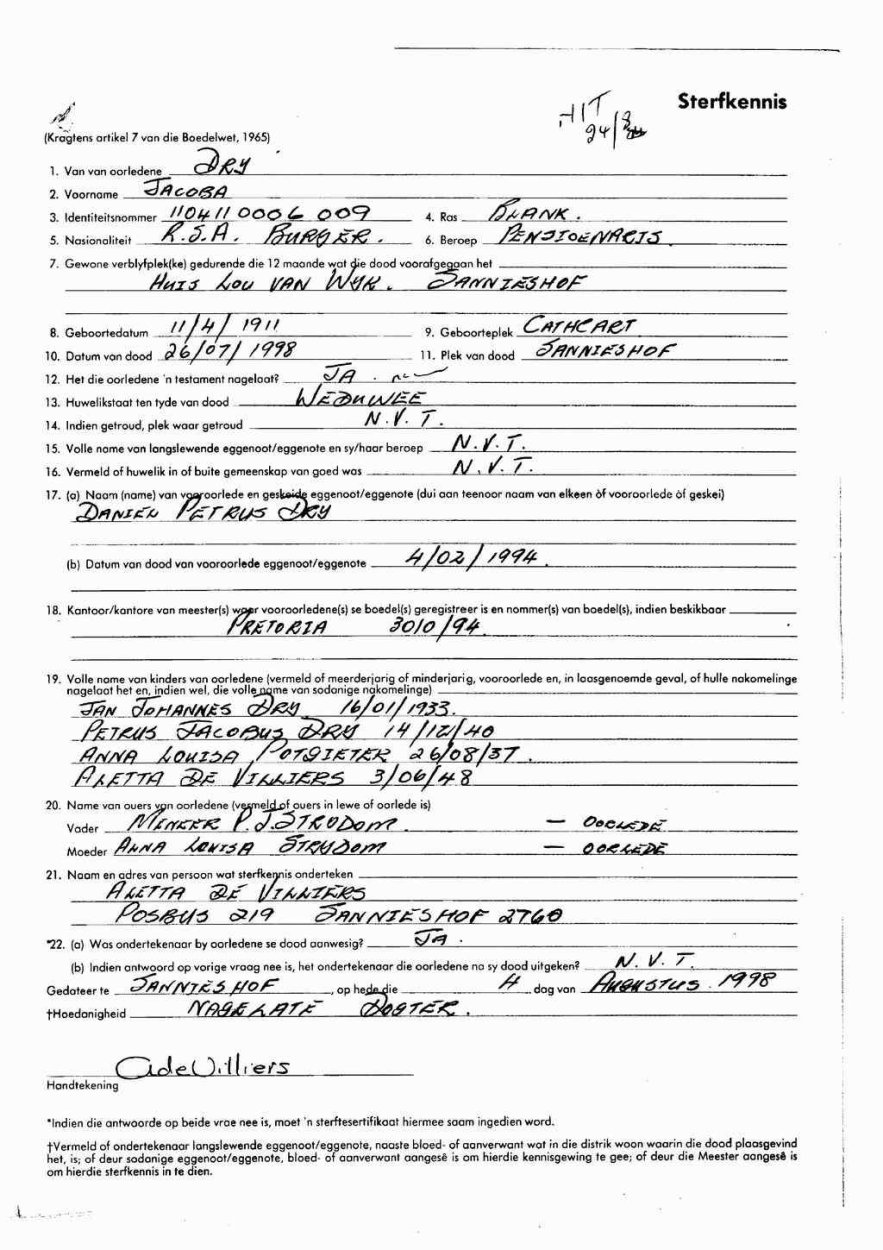 Sterfkennis
(Kragtens artikel 7 van die Boedelwet, 1965)
1. Van van oorledene DRY
2. Voorname JACOBA
3. Identiteitsnommer 110411 0006 009 4. Ras BLANK.
5. Nasionaliteit R.S.A. BURGER. 6. Beroep PENSIOENARIS
7. Gewone verblyfplek(ke) gedurende die 12 maande wat die dood voorafgegaan het
HUIS LOU VAN WYK. SANNIESHOF
8. Geboortedatum 11/4/1911 9. Geboorteplek CATHCART
10. Datum van dood 26/07/1998 11. Plek van dood SANNIESHOF
12. Het die oorledene 'n testament nagelaat? JA.
13. Huwelikstaat ten tyde van dood WEDUWEE
14. Indien getroud, plek waar getroud N.V.T.
15. Volle name van langslewende eggenoot/eggenote en sy/haar beroep N.V.T.
16. Vermeld of huwelik in of buite gemeenskap van goed was N.V.T.
17. (a) Naam (name) van vooroorlede en geskeide eggenoot/eggenote (dui aan teenoor naam van elkeen òf vooroorlede òf geskei)
DANIEL PETRUS DRY
(b) Datum van dood van vooroorlede eggenoot/eggenote 4/02/1994.
18. Kantoor/kantore van meester(s) waar vooroorledene(s) se boedel(s) geregistreer is en nommer(s) van boedel(s), indien beskikbaar
PRETORIA 3010/94
19. Volle name van kinders van oorledene (vermeld of meerderjarig of minderjarig, vooroorlede en, in laasgenoemde geval, of hulle nakomelinge
nagelaat het en, indien wel, die volle name van sodanige nakomelinge)
JAN JOHANNES DRY 16/01/1933.
PETRUS JACOBUS DRY 14/12/40
ANNA LOUISA POTGIETER 26/08/37.
ALETTA DE VILLIERS 3/06/48
20. Name van ouers van oorledene (vermeld of ouers in lewe of oorlede is)
Vader MENEER P.J. STRYDOM. — OORLEDE
Moeder ANNA LOUISA STRYDOM — OORLEDE
21. Naam en adres van persoon wat sterfkennis onderteken
ALETTA DE VILLIERS
POSBUS 219 SANNIESHOF 2760
*22. (a) Was ondertekenaar by oorledene se dood aanwesig? JA.
(b) Indien antwoord op vorige vraag nee is, het ondertekenaar die oorledene na sy dood uitgeken? N.V.T.
Gedateer te SANNIESHOF, op hede die 4 dag van AUGUSTUS. 1998
†Hoedanigheid NAGELATE DOGTER.
AdeVilliers
Handtekening
*Indien die antwoorde op beide vrae nee is, moet 'n sterftesertifikaat hiermee saam ingedien word.
†Vermeld of ondertekenaar langslewende eggenoot/eggenote, naaste bloed- of aanverwant wat in die distrik woon waarin die dood plaasgevind
het, is; of deur sodanige eggenoot/eggenote, bloed- of aanverwant aangesê is om hierdie kennisgewing te gee; of deur die Meester aangesê is
om hierdie sterfkennis in te dien.